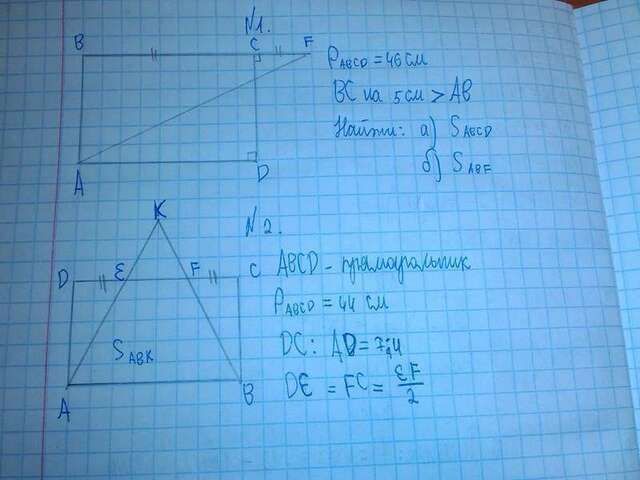 N1.
B C F
P ABCD = 46 см
BC на 5 см > AB
Найти: а) S ABCD
б) S ABF
A D
K
N 2.
D E F C
ABCD - прямоугольник
P ABCD = 44 см
DC : AD = 7:4
S ABK
DE = FC = EF/2
A B